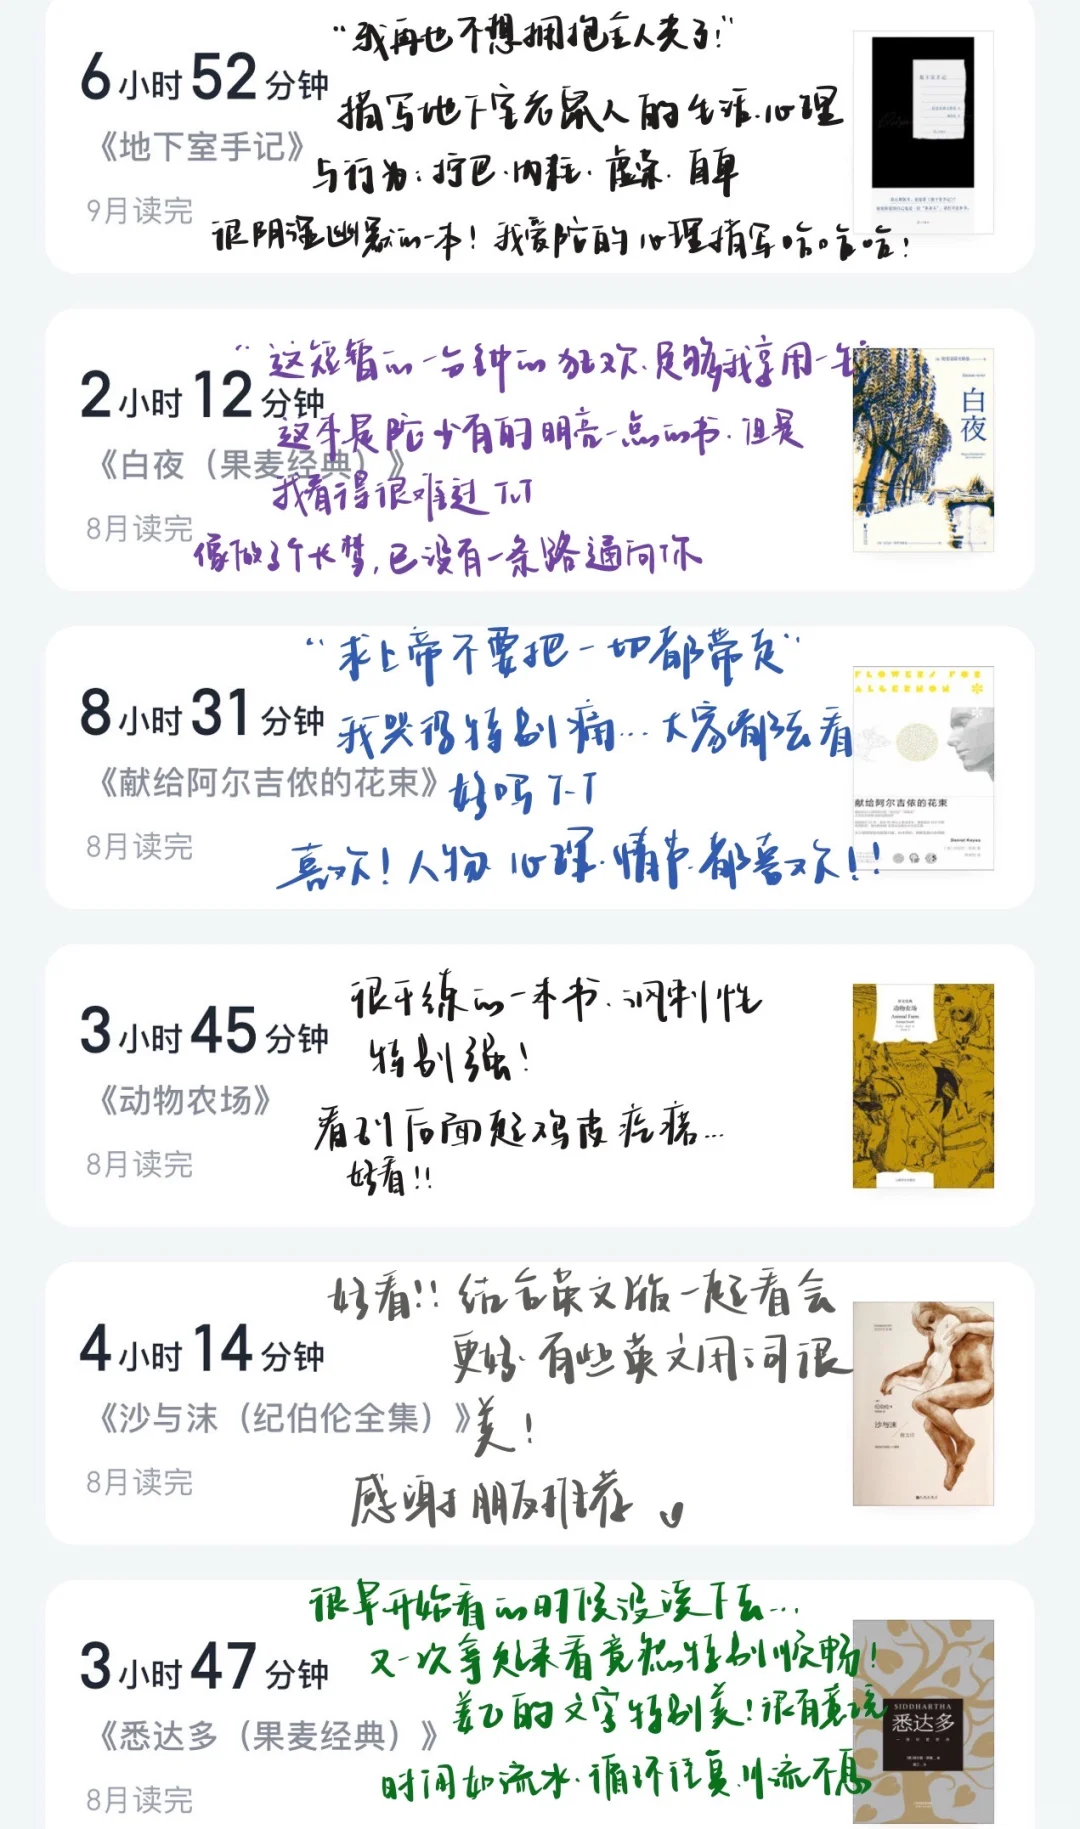 “我再也不想拥抱主人夫了!”
6小时52分钟
描写地下室老鼠人的生活.心理
《地下室手记》
与行为：拧巴.内耗.虚荣.自卑
9月读完
很阴湿幽默的一本！我爱陀的心理描写哈哈哈！
“这短暂的一分钟的狂欢.足够我享用一生
2小时12分钟
这本是陀少有的明亮一点的书.但是
《白夜（果麦经典）》
我看得很难过T.T
8月读完
像做了个长梦,已没有一条路通向你
白夜
“求上帝不要把一切都带走”
8小时31分钟
我哭得特别痛...大家都去看
《献给阿尔吉侬的花束》
好吗T.T
8月读完
喜欢！人物.心理.情节.都喜欢！！
FLOWERS FOR
ALGERNON
献给阿尔吉侬的花束
Daniel Keyes
很干练的一本书.讽刺性
3小时45分钟
特别强！
《动物农场》
看到后面起鸡皮疙瘩...
8月读完
好看!!
动物农场
Animal Farm
好看!!结合英文版一起看会
4小时14分钟
更好.有些英文用词很
《沙与沫（纪伯伦全集）》
美！
8月读完
感谢朋友推荐
沙与沫
很早开始看的时候没读下去...
3小时47分钟
又一次拿起来看竟然特别顺畅！
《悉达多（果麦经典）》
美的文字特别美！很有意境
8月读完
时间如流水.循环往复.川流不息
SIDDHARTHA
悉达多